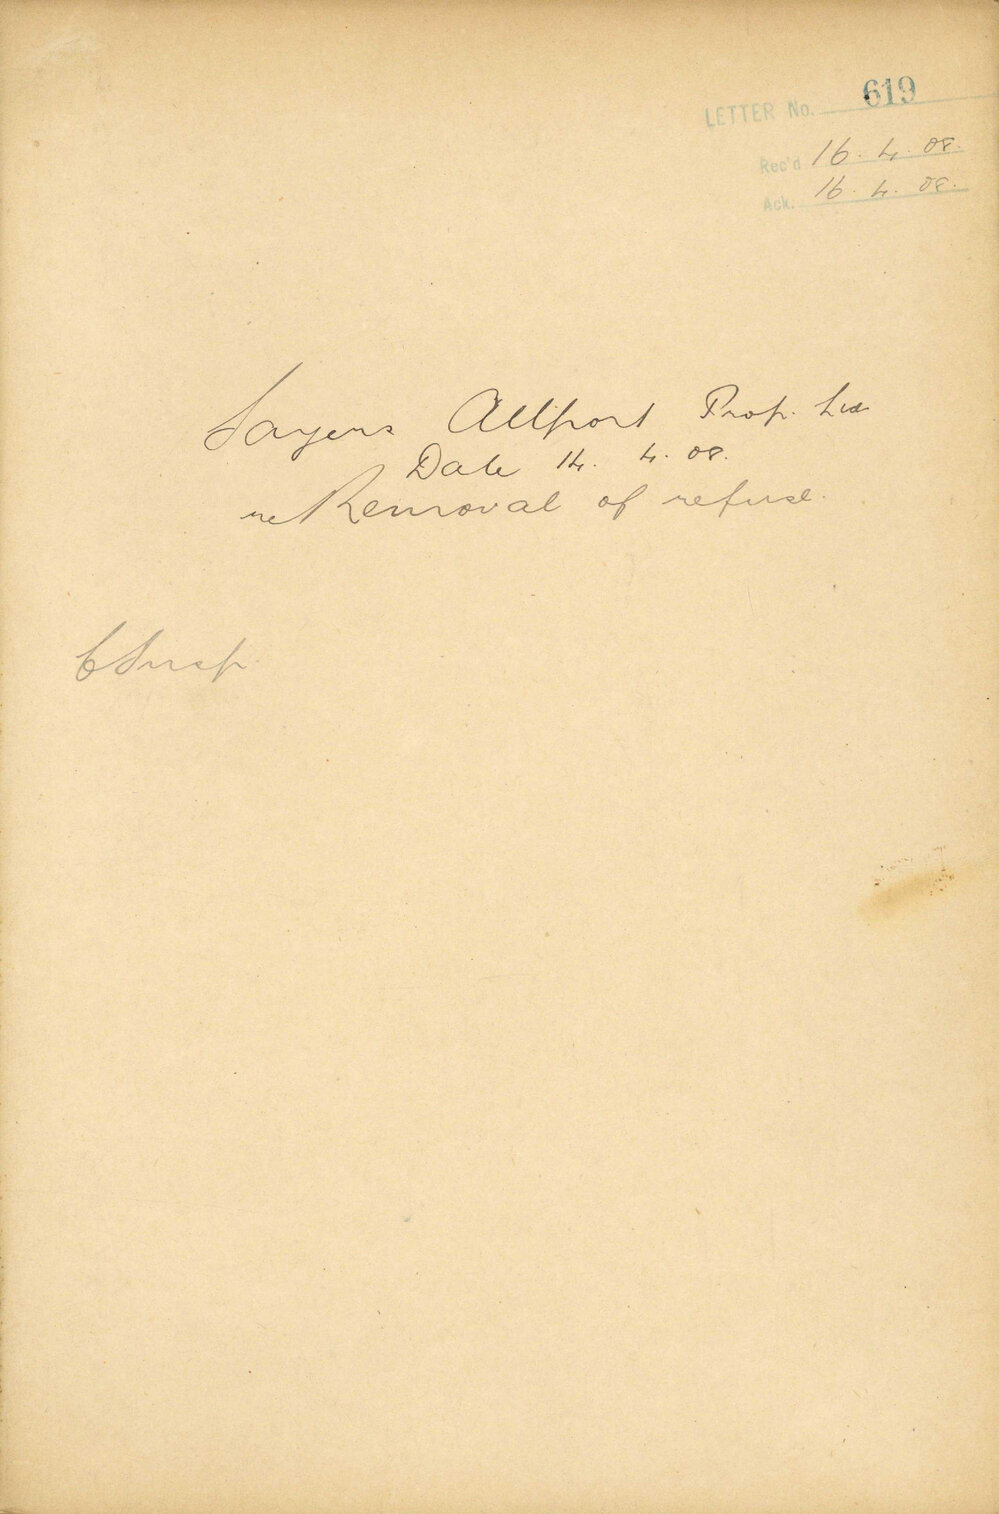 LETTER No. 619
Rec'd 16. 4. 08.
Ack. 16. 4. 08.
Sayers Allport Prop. Ltd
Date 14. 4. 08.
re Removal of refuse.
C Insp